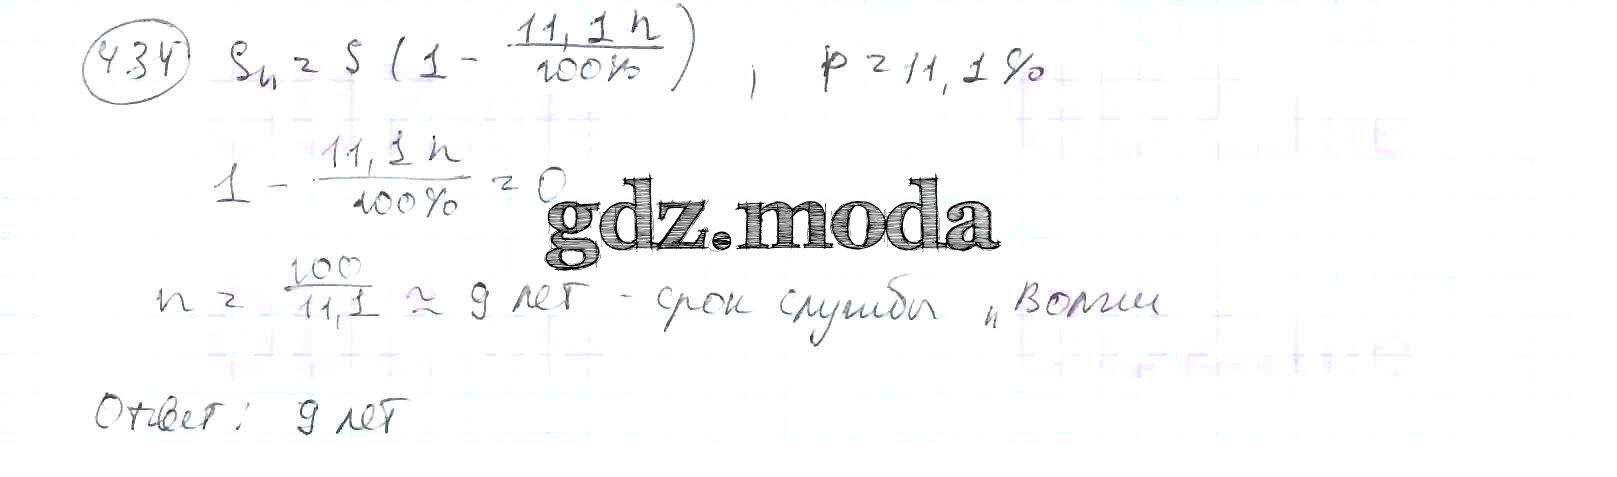 434 Sn = S (1 - 11,1 n / 100%), p = 11,1%
1 - 11,1 n / 100% = 0
gdz.moda
n = 100 / 11,1 ≈ 9 лет - срок службы „Волги
Ответ: 9 лет